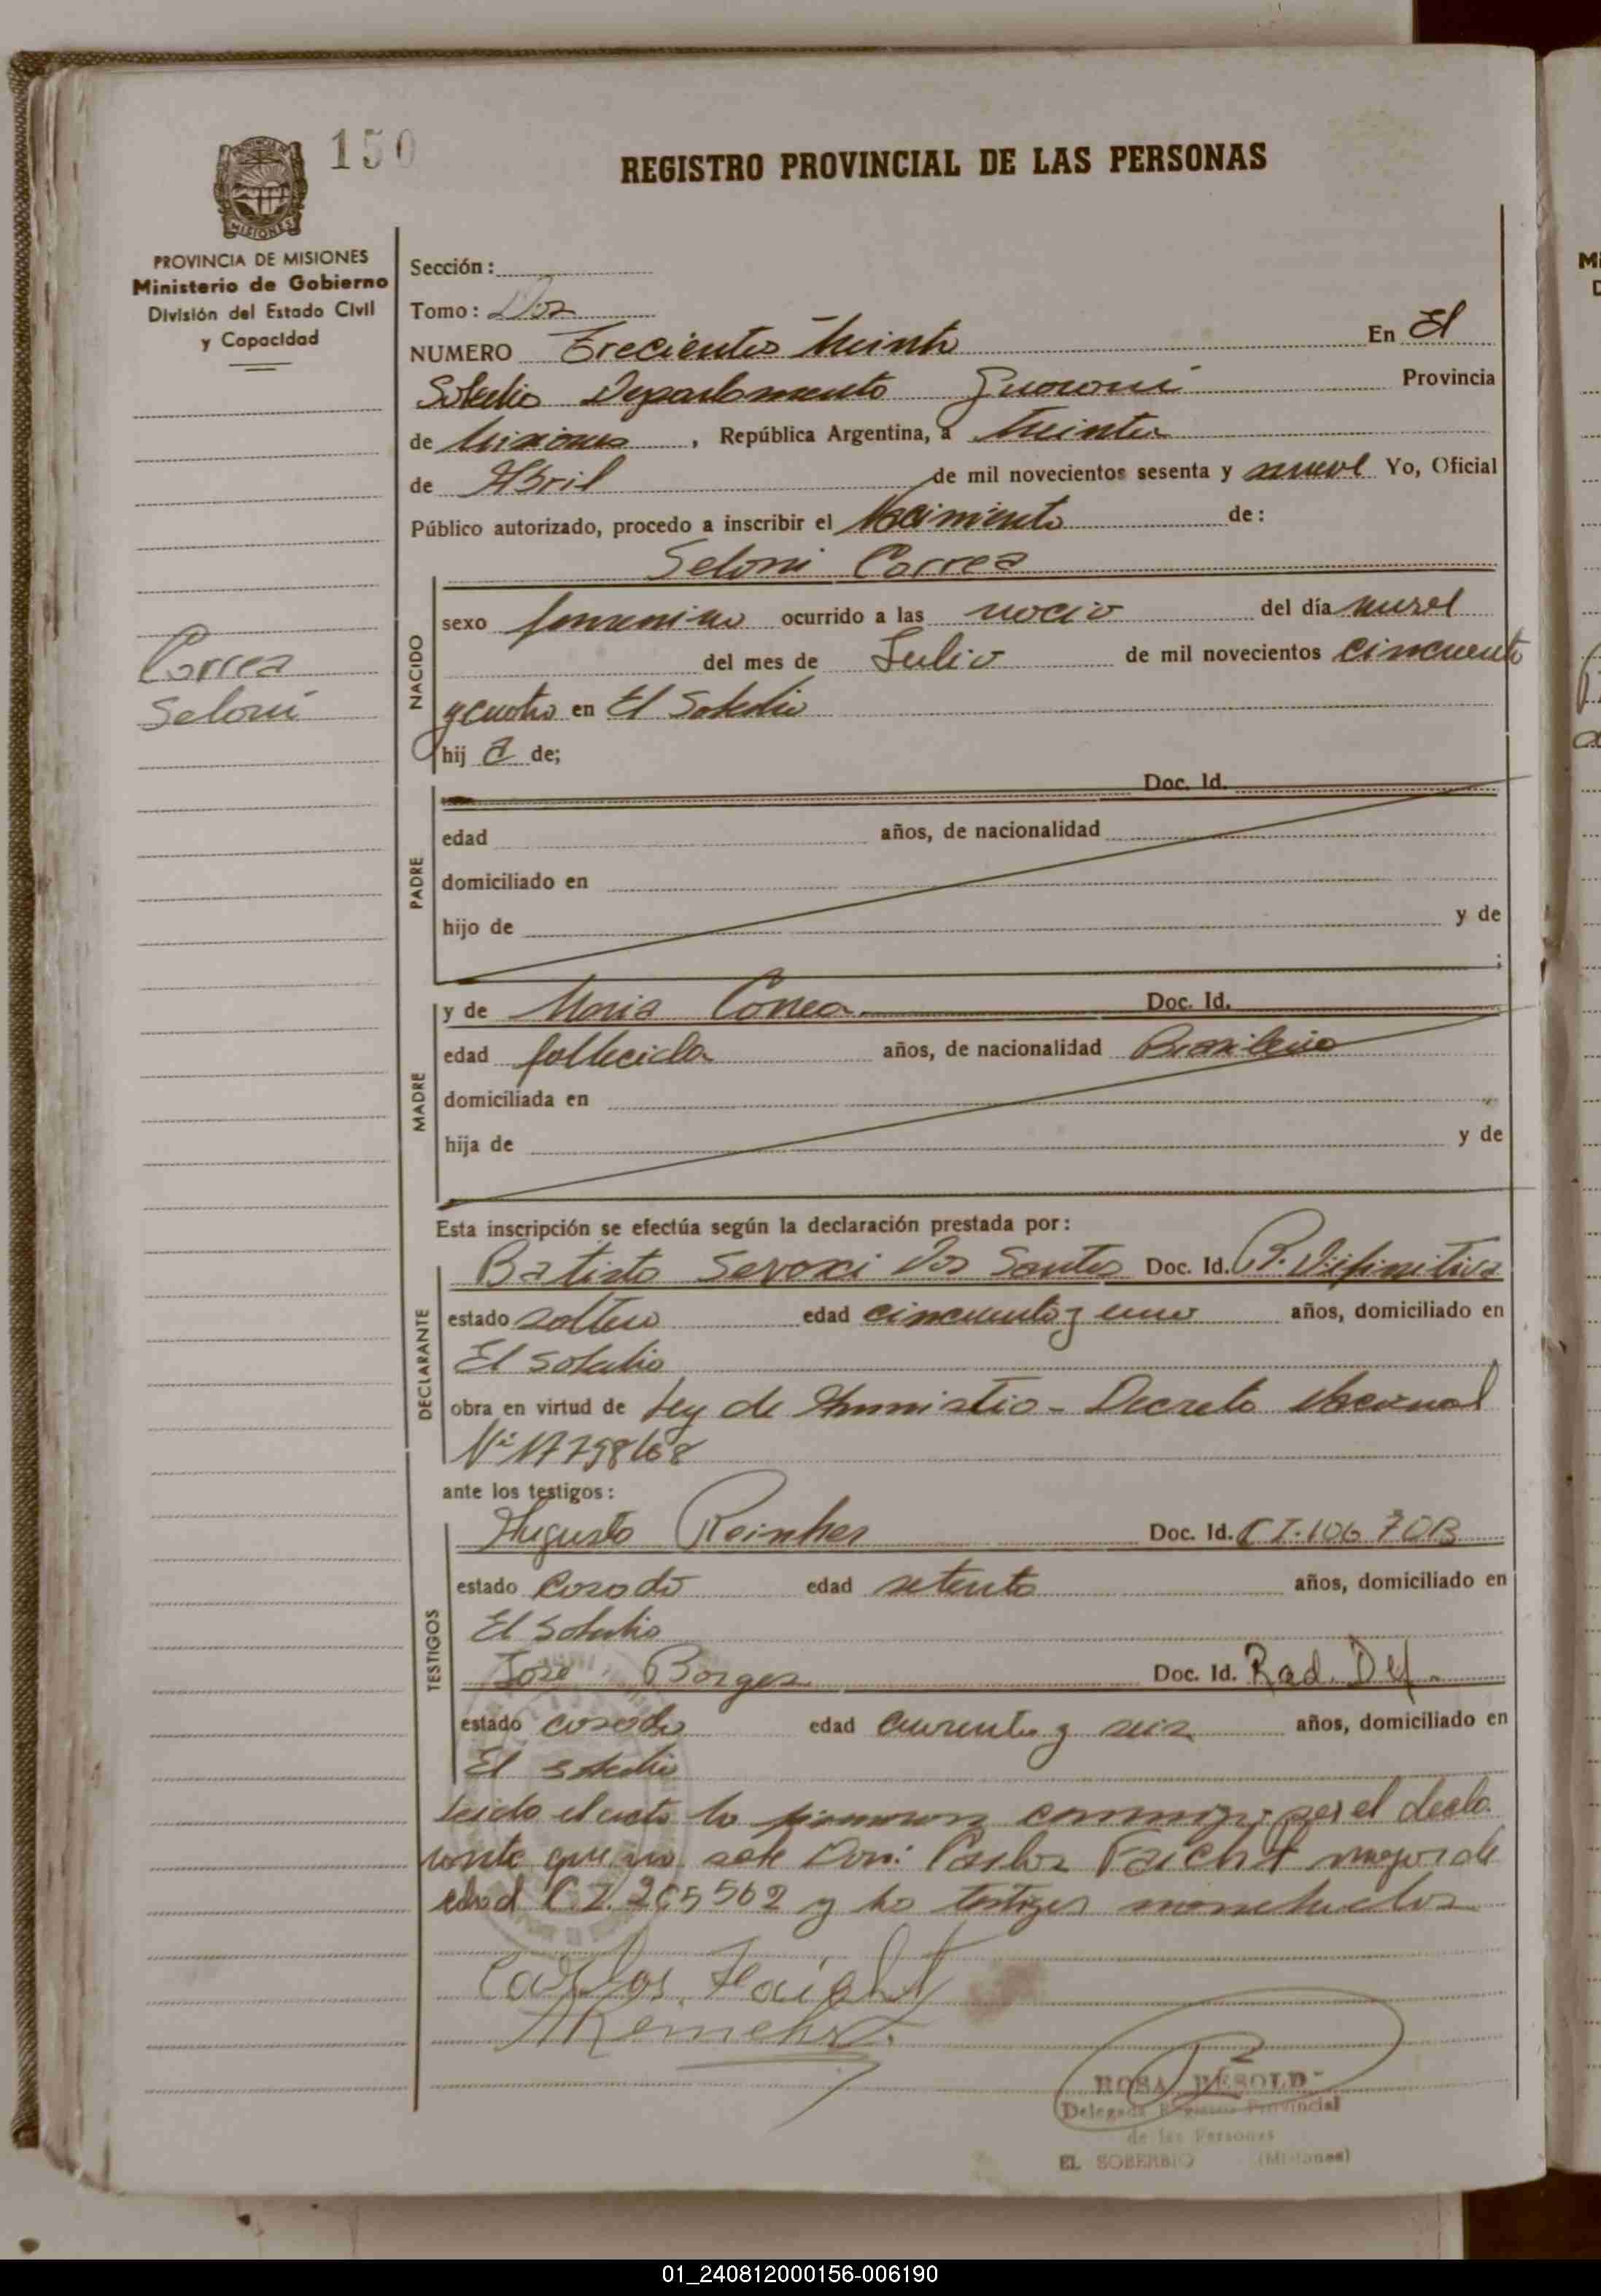 150
REGISTRO PROVINCIAL DE LAS PERSONAS
MISIONES
PROVINCIA DE MISIONES
Ministerio de Gobierno
División del Estado Civil
y Capacidad
Sección:
Tomo: Dos
NUMERO Trecientos treinta En El
Soberbio Departamento Guarani Provincia
de Misiones, República Argentina, a treinta
de Abril de mil novecientos sesenta y nueve Yo, Oficial
Público autorizado, procedo a inscribir el Nacimiento de:
Seloni Correa
Correa
Seloni
NACIDO
sexo femenino ocurrido a las del día nueve
del mes de Julio de mil novecientos cincuenta
y cuatro en El Soberbio
hij a de;
PADRE
Doc. Id.
edad años, de nacionalidad
domiciliado en
hijo de y de
;
MADRE
y de Maria Correa Doc. Id.
edad fallecida años, de nacionalidad Brasileña
domiciliada en
hija de y de
Esta inscripción se efectúa según la declaración prestada por:
DECLARANTE
Batista Dos Santos Doc. Id. R. Difinitiva
estado soltero edad cincuenta y uno años, domiciliado en
El Soberbio
obra en virtud de Ley de Amnistia - Decreto Nacional
Nº 17798/68
ante los testigos:
TESTIGOS
Augusto Reinher Doc. Id. CI. 106.708
estado casado edad setenta años, domiciliado en
El Soberbio
Jose Borges Doc. Id. Rad. Def.
estado casado edad cuarenta y seis años, domiciliado en
El Soberbio
Leido el acta la firmaron conmigo por el decla
rante que no sabe Don: Carlos Faicht mayor de
edad C.I. 265562 y los testigos
Carlos Haight
ROSA BESOLD
Delegada Registro Provincial
de las Personas
EL SOBERBIO (Misiones)
01_240812000156-006190